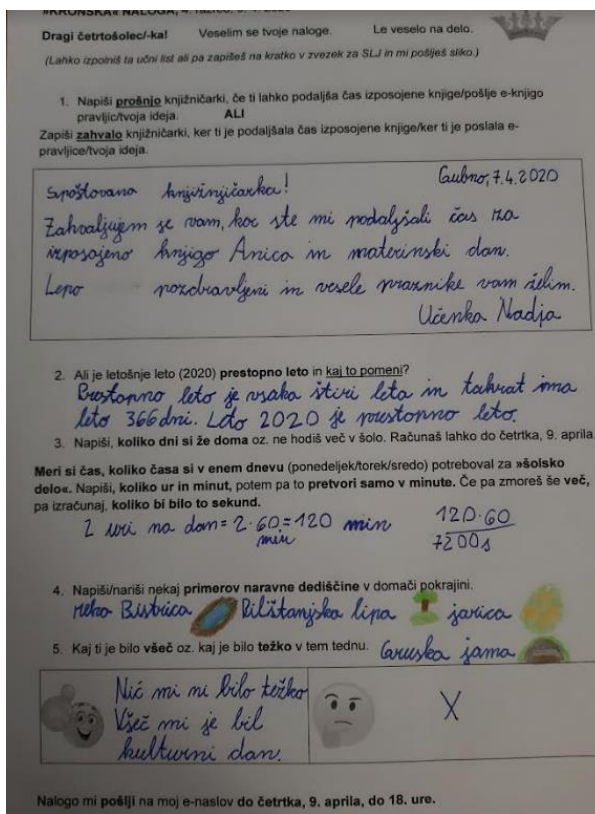 »KRONSKA« NALOGA, 4. razred,
Dragi četrtošolec/-ka! Veselim se tvoje naloge. Le veselo na delo.
(Lahko izpolniš ta učni list ali pa zapišeš na kratko v zvezek za SLJ in mi pošlješ sliko.)
1. Napiši prošnjo knjižničarki, če ti lahko podaljša čas izposojene knjige/pošlje e-knjigo
pravljic/tvoja ideja. ALI
Zapiši zahvalo knjižničarki, ker ti je podaljšala čas izposojene knjige/ker ti je poslala e-
pravljice/tvoja ideja.
Spoštovana knjižnjičarka! Gubno, 7.4.2020
Zahvaljujem se vam, kor ste mi podaljšali čas za
izposojeno knjigo Anica in materinski dan.
Lepo pozdravljeni in vesele praznike vam želim.
Učenka Nadja
2. Ali je letošnje leto (2020) prestopno leto in kaj to pomeni?
Prestopno leto je vsaka štiri leta in takrat ima
leto 366 dni. Leto 2020 je prestopno leto.
3. Napiši, koliko dni si že doma oz. ne hodiš več v šolo. Računaš lahko do četrtka, 9. aprila
Meri si čas, koliko časa si v enem dnevu (ponedeljek/torek/sredo) potreboval za »šolsko
delo«. Napiši, koliko ur in minut, potem pa to pretvori samo v minute. Če pa zmoreš še več,
pa izračunaj, koliko bi bilo to sekund.
2 uri na dan = 2·60=120 min 120·60
min 7200s
4. Napiši/nariši nekaj primerov naravne dediščine v domači pokrajini.
reka Bistrica Pilštanjska lipa jarica
5. Kaj ti je bilo všeč oz. kaj je bilo težko v tem tednu. Gruska jama
Nič mi ni bilo težko X
Všeč mi je bil
kulturni dan.
Nalogo mi pošlji na moj e-naslov do četrtka, 9. aprila, do 18. ure.